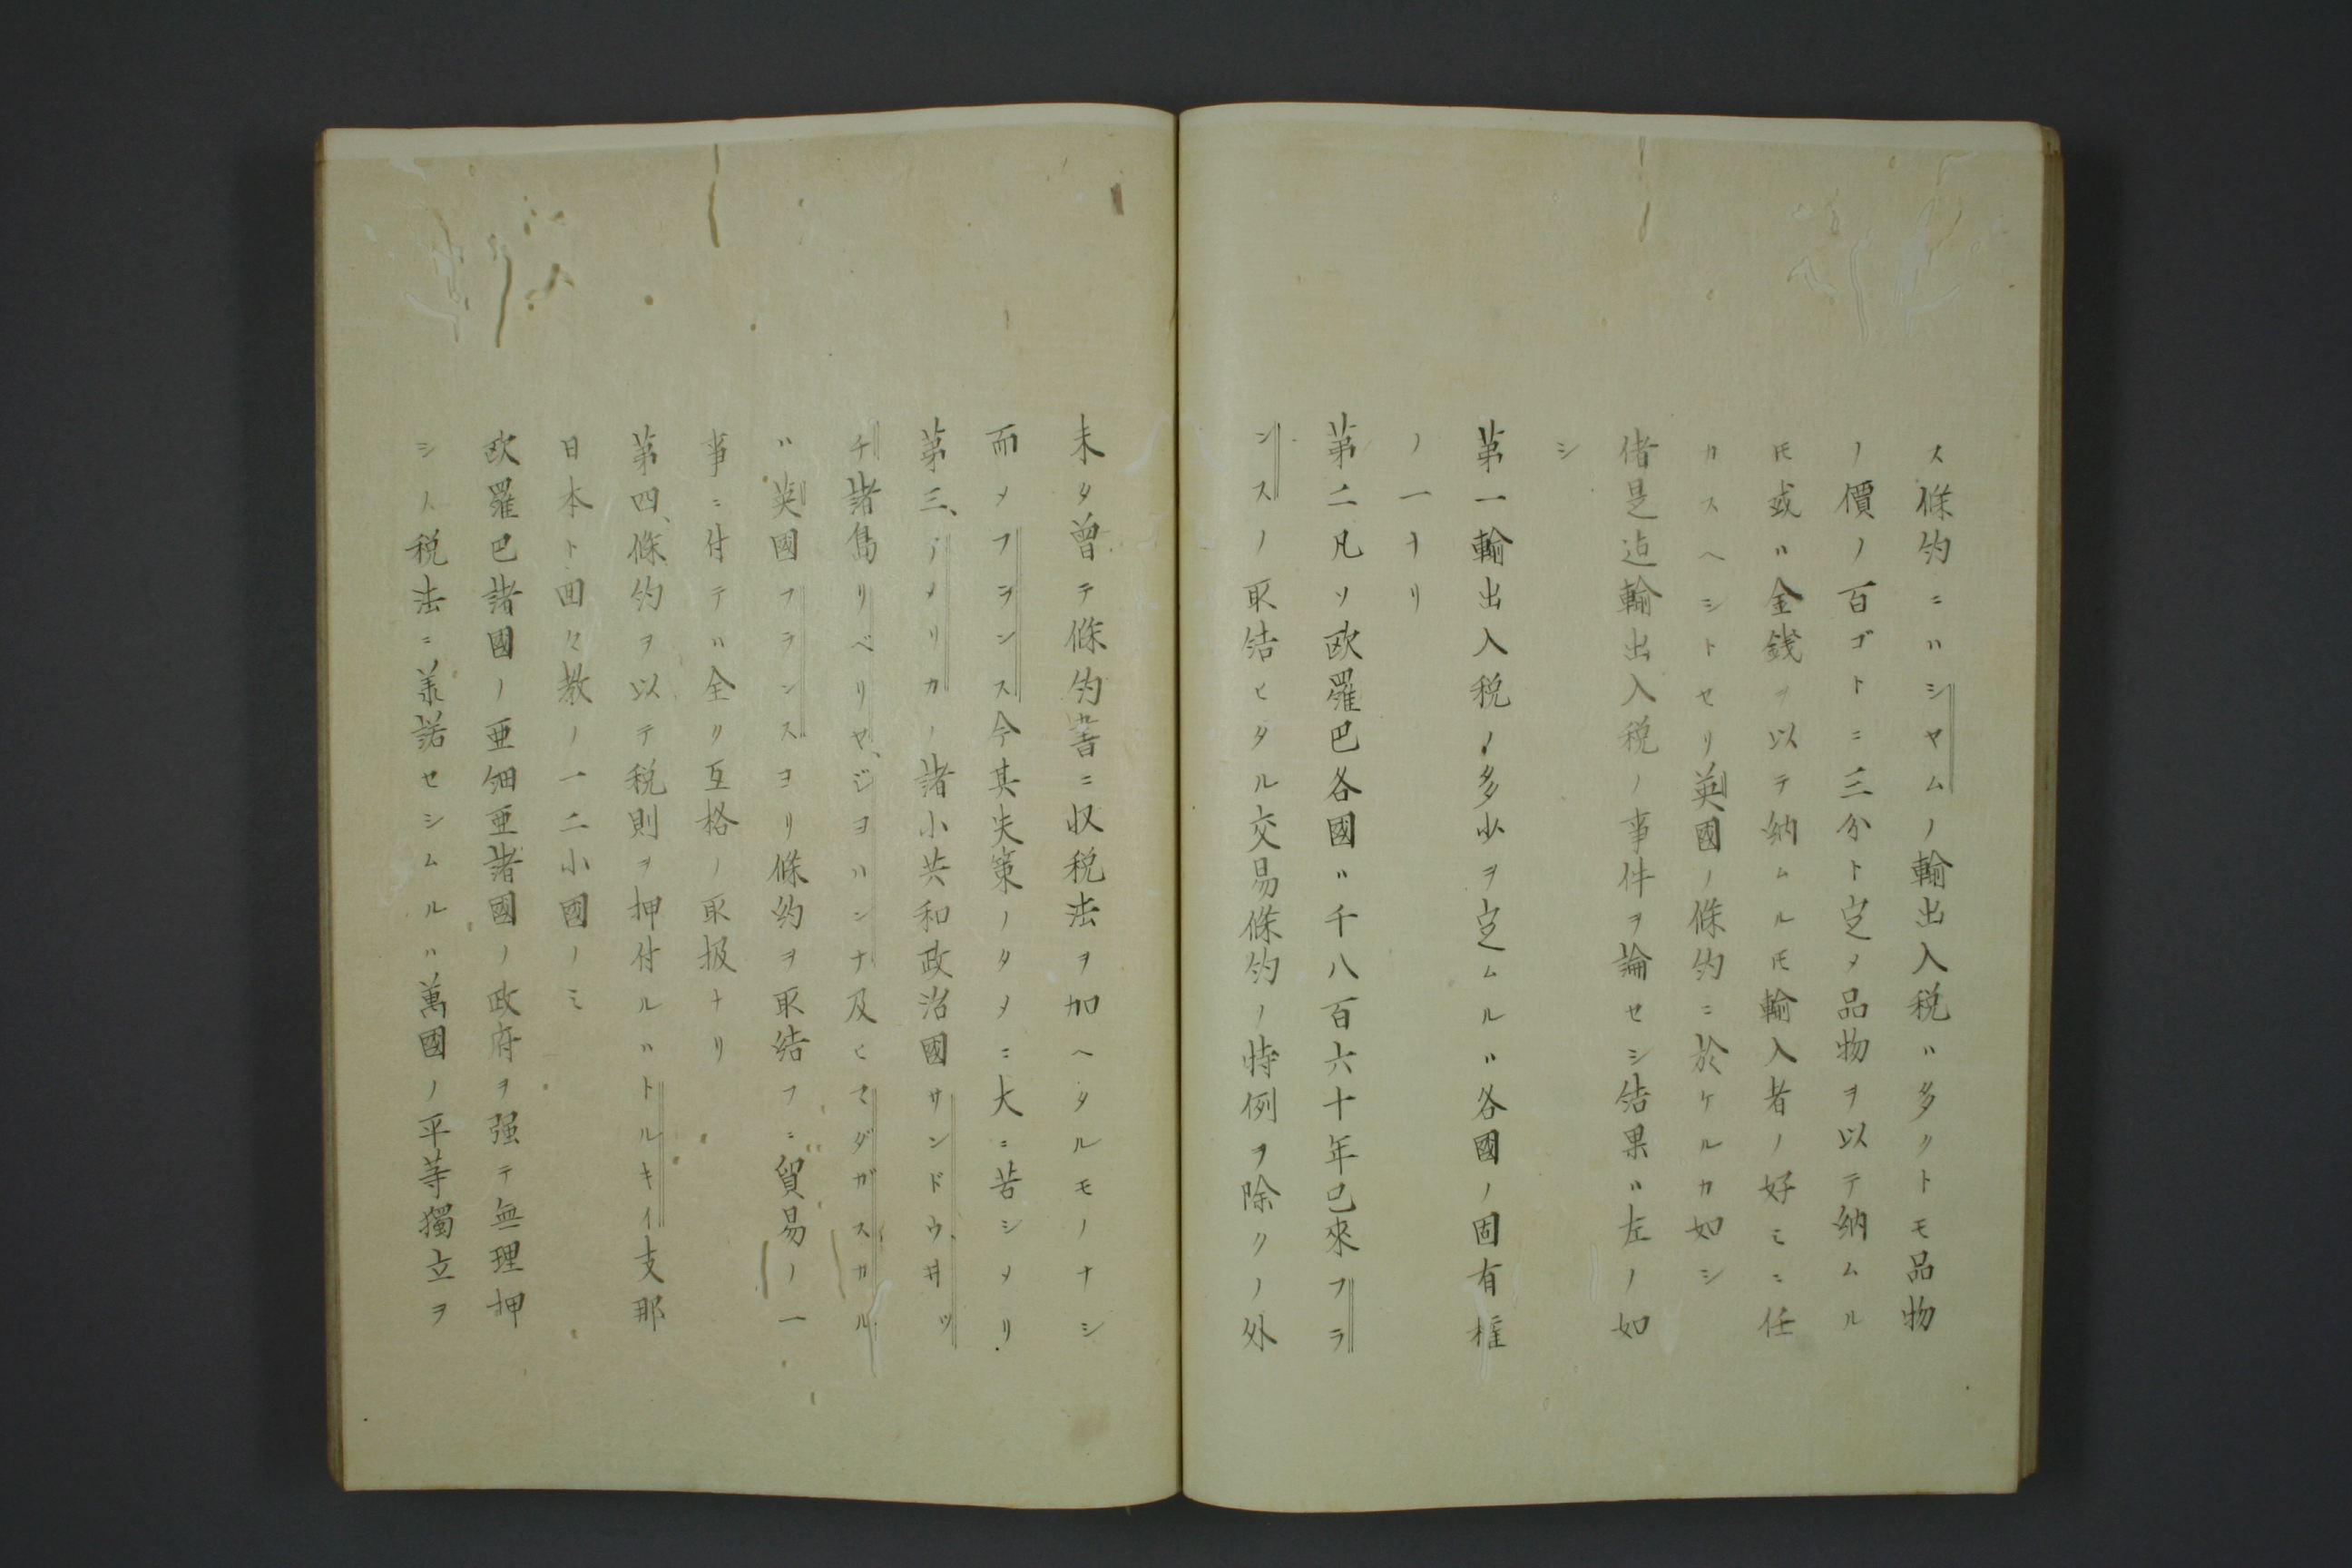 ス條約ニハシヤムノ輸出入税ハ多クトモ品物
ノ價ノ百ゴトニ三分ト定メ品物ヲ以テ納ムル
𪜈或ハ金錢ヲ以テ納ムル𪜈輸入者ノ好ミニ任
カスヘシトセリ英國ノ條約ニ於ケルカ如シ
偖是迠輸出入税ノ事件ヲ論セシ結果ハ左ノ如
シ
第一輸出入税ノ多少ヲ定ムルハ各國ノ固有権
ノ一ナリ
第二凡ソ欧羅巴各國ハ千八百六十年已來フラ
ンスノ取結ヒタル交易條約ノ特例ヲ除クノ外
未タ曾テ條約書ニ収税法ヲ加ヘタルモノナシ
而メフランス今其失策ノタメニ大ニ苦シメリ
第三、アメリカノ諸小共和政治國サンドウ井ツ
チ諸島リベリヤ、ジヨハンナ及ヒマダガスカル
ハ英國フランスヨリ條約ヲ取結フニ貿易ノ一
事ニ付テハ全ク互格ノ取扱ナリ
第四、條約ヲ以テ税則ヲ押付ルハトルキイ支那
日本ト囬々教ノ一二小國ノミ
欧羅巴諸國ノ亜細亜諸國ノ政府ヲ强テ無理押
シノ税法ニ承諾セシムルハ萬國ノ平等獨立ヲ